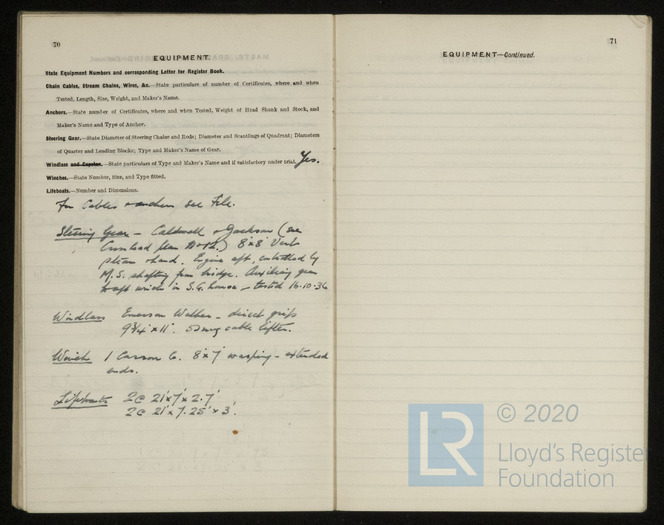 70
EQUIPMENT.
State Equipment Numbers and corresponding Letter for Register Book.
Chain Cables, Stream Chains, Wires, &c.—State particulars of number of Certificates, where and when
Tested, Length, Size, Weight, and Maker's Name.
Anchors.—State number of Certificates, where and when Tested, Weight of Head Shank and Stock, and
Maker's Name and Type of Anchor.
Steering Gear.—State Diameter of Steering Chains and Rods; Diameter and Scantlings of Quadrant; Diameters
of Quarter and Leading Blocks; Type and Maker's Name of Gear.
Windlass and Capstan.—State particulars of Type and Maker's Name and if satisfactory under trial. Yes.
Winches.—State Number, Size, and Type fitted.
Lifeboats.—Number and Dimensions.
For Cables & anchors see File.
Steering Gear – Caldwell & Jackson (see
plan No 12.) 8"x8" Vert
steam & hand. Engine aft, controlled by
M.S. shafting from bridge. Auxiliary gear
winch in S.G. house – tested 16-10-36
Windlass Emerson Walker – direct grip
9¾" x 11". cable lifter.
Winch 1 Carron Co. 8"x7" warping – extended
ends.
Lifeboats 2 @ 21'x7'x2.7'
2 @ 21'x7.25'x3'
71
EQUIPMENT—Continued.
LR
© 2020
Lloyd's Register
Foundation